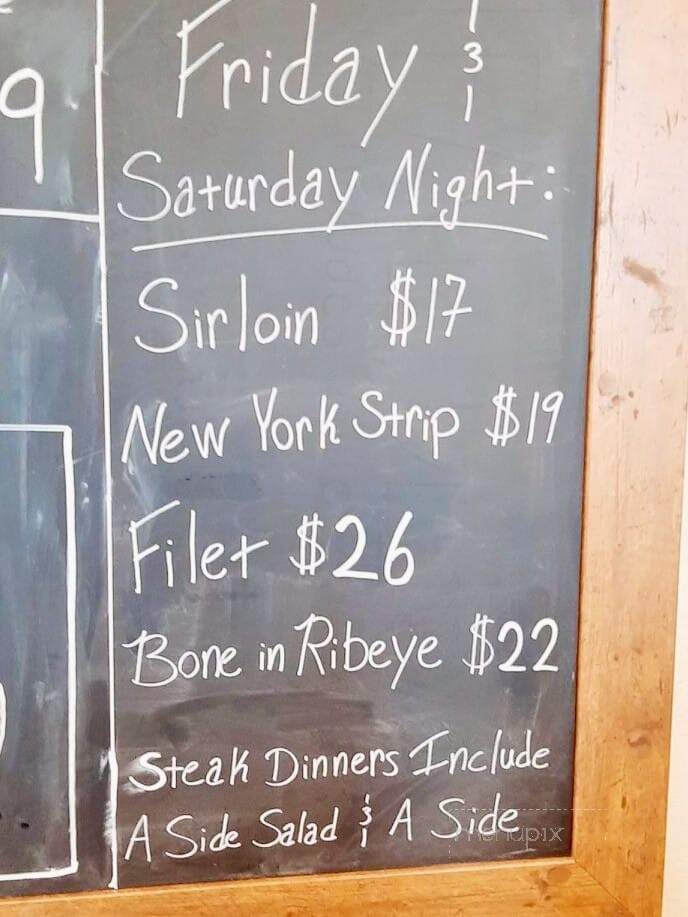 9
Friday &
Saturday Night:
Sirloin $17
New York Strip $19
Filet $26
Bone in Ribeye $22
Steak Dinners Include
A Side Salad & A Side
menupix